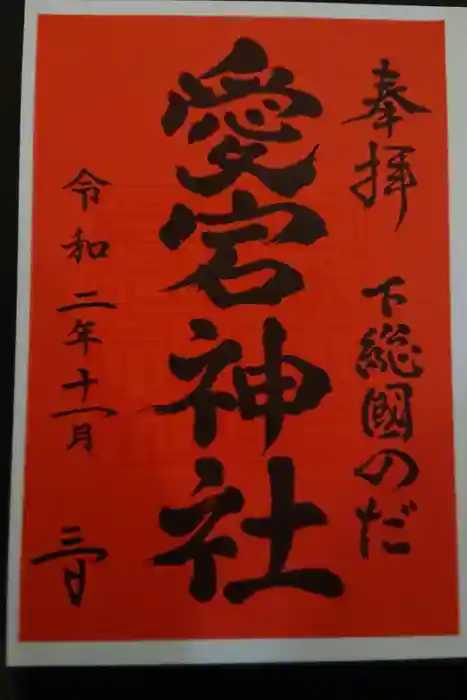 奉拝 下総國のだ
愛宕神社
令和二年十一月三日